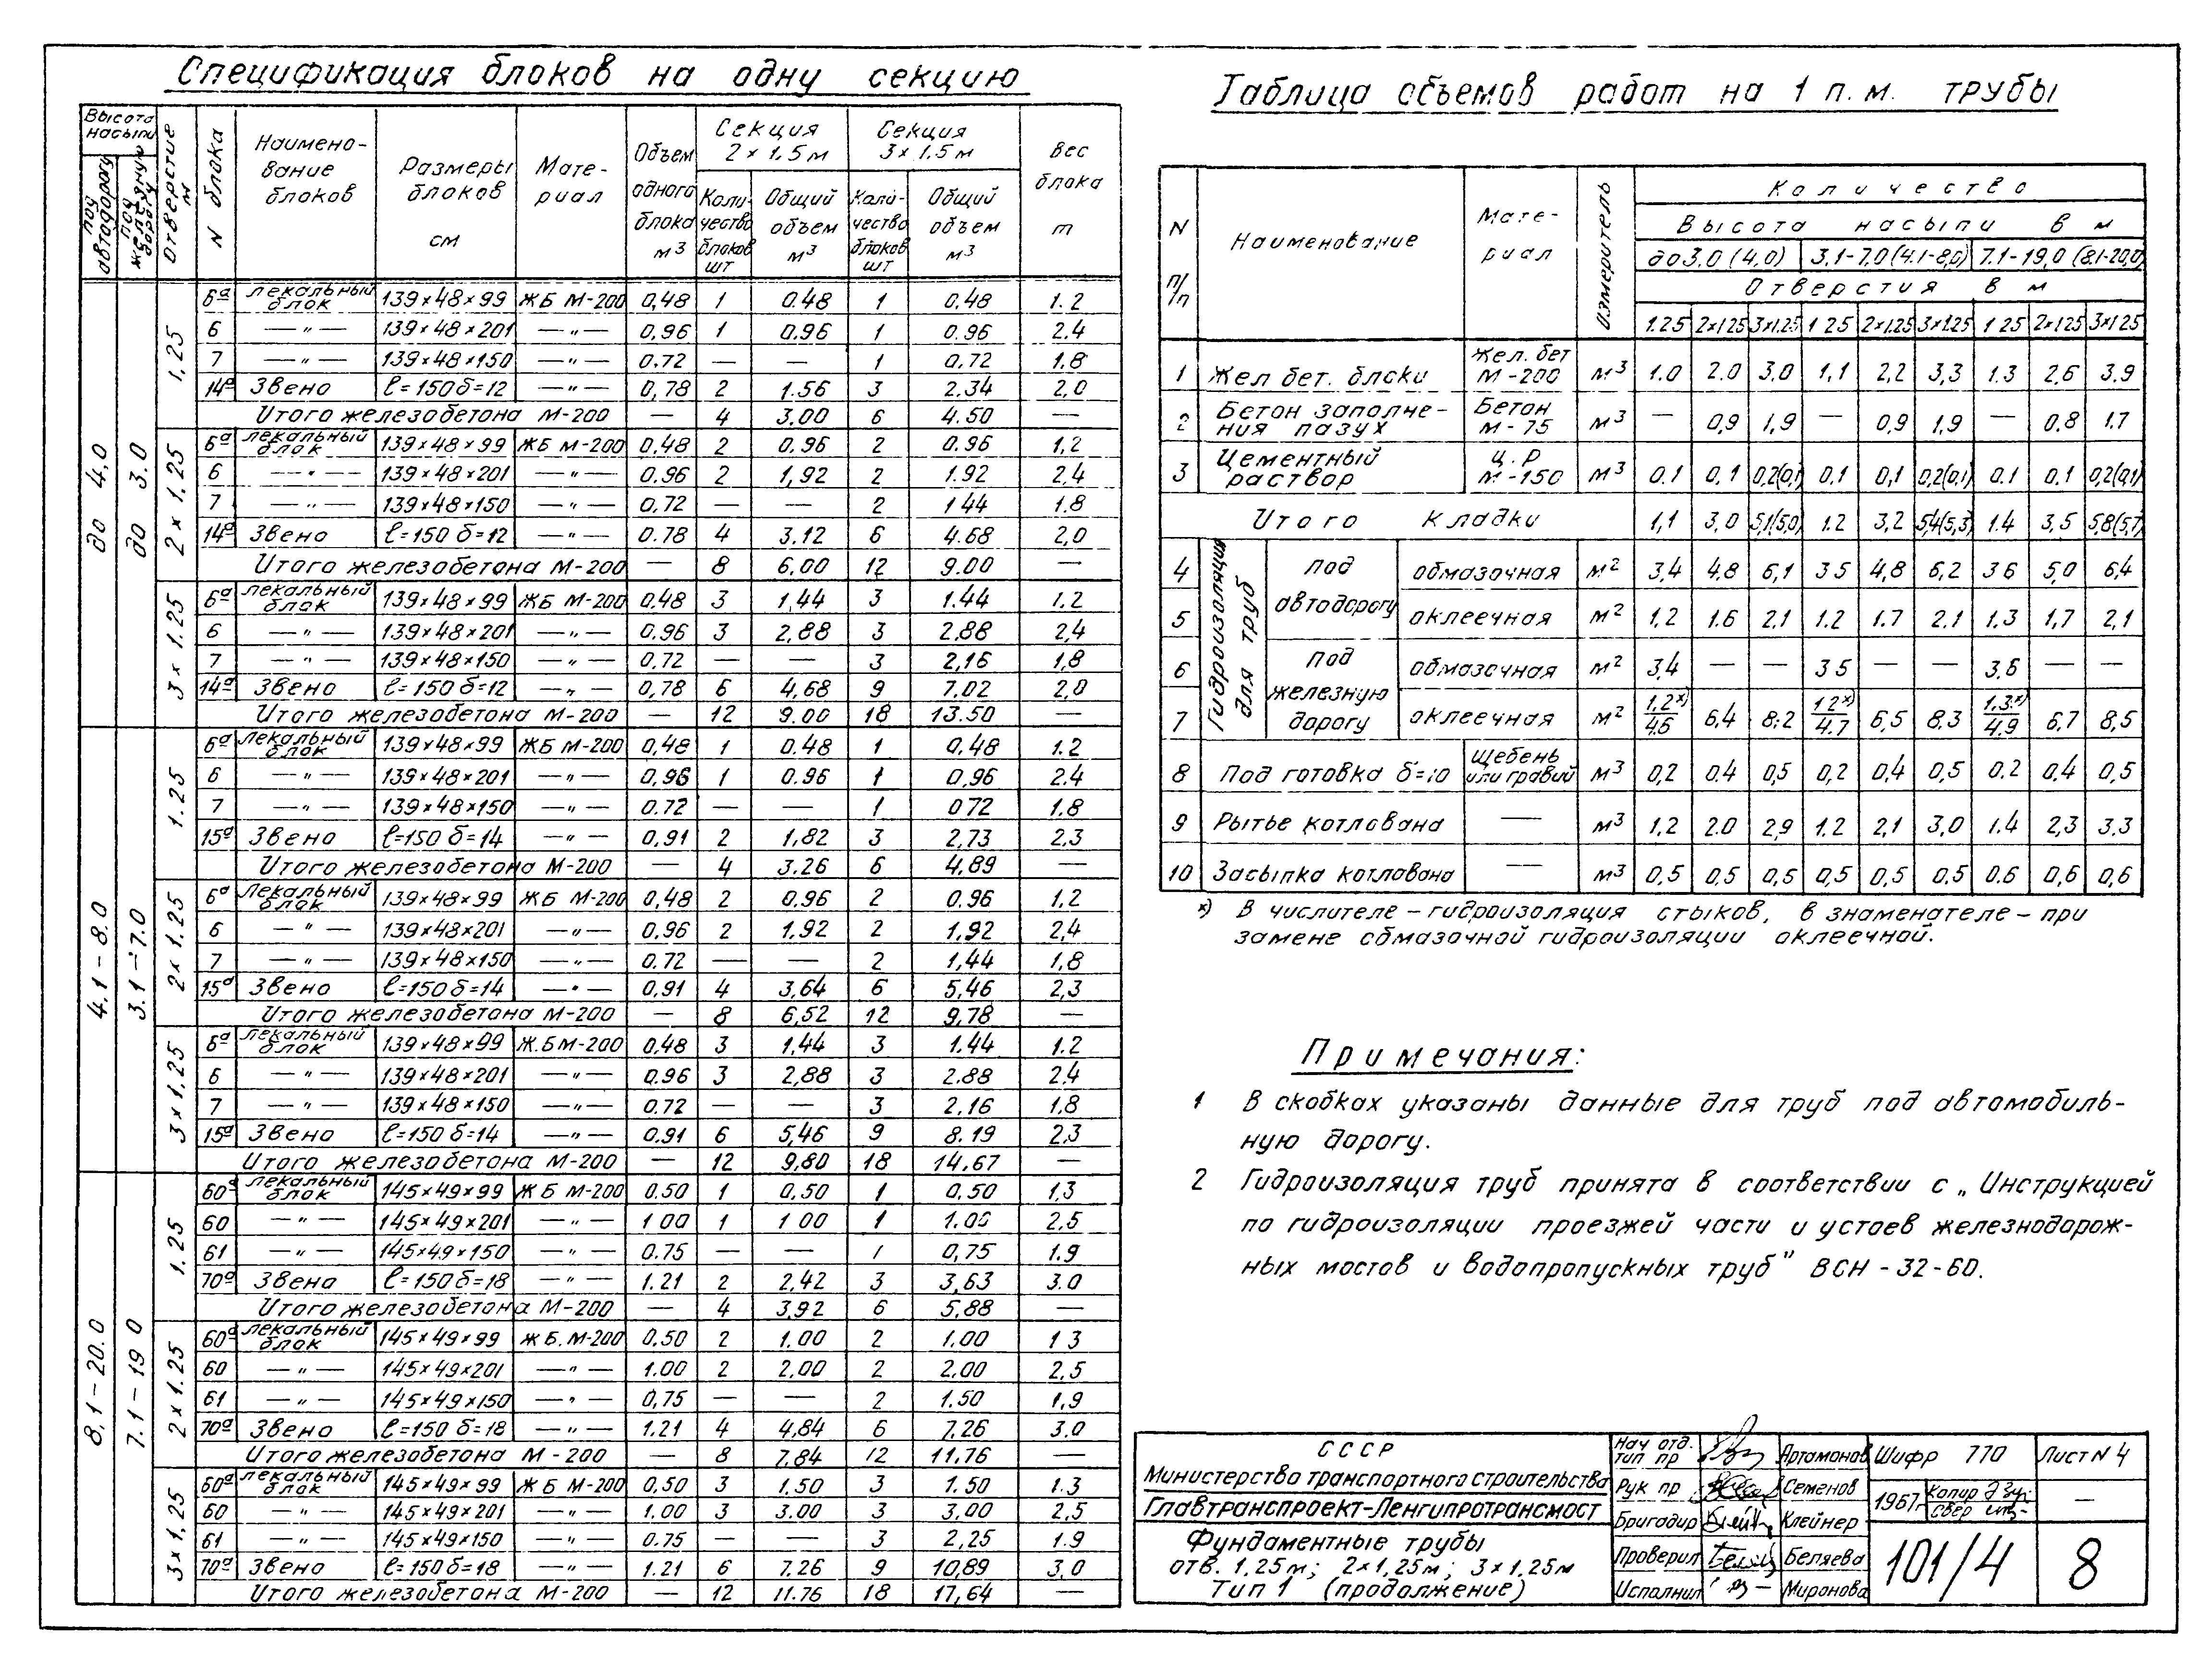 Спецификация блоков на одну секцию
Высота насыпи | Отверстие м | N блока | Наимено-вание блоков | Размеры блоков см | Мате-риал | Объем одного блока м3 | Секция 2×1,5м | Секция 3×1,5м | вес блока т
под автодорогу | под железную дорогу | Коли-чество блоков шт | Общий объем м3 | Коли-чество блоков шт | Общий объем м3
до 4,0 | до 3.0
1,25
6а лекальный блок 139×48×99 ЖБ М-200 0,48 1 0.48 1 0,48 1.2
6 —"— 139×48×201 —"— 0,96 1 0.96 1 0.96 2.4
7 —"— 139×48×150 —"— 0.72 — — 1 0.72 1.8
14а Звено ℓ=150 δ=12 —"— 0,78 2 1.56 3 2.34 2,0
Итого железобетона М-200 — 4 3.00 6 4.50 —
2×1.25
6а лекальный блок 139×48×99 ЖБ М-200 0.48 2 0.96 2 0.96 1,2
6 —"— 139×48×201 —"— 0.96 2 1,92 2 1.92 2,4
7 —"— 139×48×150 —"— 0.72 — — 2 1 44 1.8
14а Звено ℓ=150 δ=12 —"— 0.78 4 3.12 6 4.68 2,0
Итого железобетона М-200 — 8 6,00 12 9.00 —
3×1.25
6а лекальный блок 139×48×99 ЖБ М-200 0,48 3 1,44 3 1.44 1.2
6 —"— 139×48×201 —"— 0.96 3 2,88 3 2.88 2,4
7 —"— 139×48×150 —"— 0,72 — — 3 2,16 1,8
14а Звено ℓ=150 δ=12 —"— 0,78 6 4,68 9 7.02 2,0
Итого железобетона М-200 — 12 9.00 18 13.50 —
4,1-8.0 | 3.1-7.0
1.25
6а Лекальный блок 139×48×99 ЖБ М-200 0,48 1 0.48 1 0,48 1.2
6 —"— 139×48×201 —"— 0,96 1 0.96 1 0,96 2.4
7 —"— 139×48×150 —"— 0.72 — — 1 0 72 1.8
15а Звено ℓ=150 δ=14 —"— 0,91 2 1,82 3 2,73 2,3
Итого железобетона М-200 — 4 3.26 6 4,89 —
2×1,25
6а Лекальный блок 139×48×99 ЖБ М-200 0,48 2 0.96 2 0.96 1,2
6 —"— 139×48×201 —"— 0,96 2 1.92 2 1,92 2,4
7 —"— 139×48×150 —"— 0.72 — — 2 1,44 1,8
15а Звено ℓ=150 δ=14 —"— 0,91 4 3,64 6 5,46 2,3
Итого железобетона М-200 — 8 6,52 12 9,78 —
3×1,25
6а лекальный блок 139×48×99 Ж.Б М-200 0.48 3 1,44 3 1.44 1.2
6 —"— 139×48×201 —"— 0.96 3 2,88 3 2.88 2.4
7 —"— 139×48×150 —"— 0.72 — — 3 2,16 1,8
15а Звено ℓ=150 δ=14 —"— 0.91 6 5,46 9 8.19 2,3
Итого железобетона М-200 — 12 9,80 18 14,67 —
8,1-20.0 | 7.1-19 0
1.25
60а лекальный блок 145×49×99 ЖБ М-200 0.50 1 0,50 1 0,50 1,3
60 —"— 145×49×201 —"— 1 00 1 1 00 1 1.00 2.5
61 —"— 145×49×150 —"— 0.75 — — 1 0,75 1.9
70а Звено ℓ=150 δ=18 —"— 1.21 2 2,42 3 3,63 3.0
Итого железобетона М-200 — 4 3,92 6 5,88 —
2×1.25
60а лекальный блок 145×49×99 ЖБ. М-200 0.50 2 1.00 2 1.00 1 3
60 —"— 145×49×201 —"— 1.00 2 2,00 2 2.00 2,5
61 —"— 145×49×150 —"— 0,75 — — 2 1.50 1,9
70а Звено ℓ=150 δ=18 —"— 1.21 4 4,84 6 7.26 3.0
Итого железобетона М-200 — 8 7,84 12 11,76 —
3×1,25
60а лекальный блок 145×49×99 ЖБ М-200 0,50 3 1,50 3 1.50 1.3
60 —"— 145×49×201 —"— 1.00 3 3.00 3 3,00 2,5
61 —"— 145×49×150 —"— 0.75 — — 3 2,25 1.9
70а Звено ℓ=150 δ=18 —"— 1.21 6 7.26 9 10,89 3,0
Итого железобетона М-200 — 12 11.76 18 17,64 —
Таблица объемов работ на 1 п.м. трубы
N п/п | Наименование | Мате-риал | Измеритель | Количество
Высота насыпи в м
до 3.0 (4,0) | 3.1-7,0 (4.1-8,0) | 7.1-19,0 (8.1-20,0)
Отверстия в м
1.25 2×1 25 3×1.25 1 25 2×1,25 3×1.25 1 25 2×1 25 3×1 25
1 Жел бет. блоки Жел. бет М-200 м3 1.0 2.0 3,0 1,1 2,2 3,3 1.3 2,6 3,9
2 Бетон заполне-ния пазух Бетон М-75 м3 — 0,9 1,9 — 0,9 1,9 — 0.8 1.7
3 Цементный раствор ц.р М-150 м3 0.1 0,1 0,2(0,1) 0,1 0,1 0,2(0,1) 0.1 0.1 0,2(0,1)
Итого кладки 1,1 3,0 5,1(5,0) 1.2 3,2 5,4(5,3) 1.4 3,5 5,8(5,7)
Гидроизоляция для труб
4 под автодорогу обмазочная м2 3,4 4,8 6,1 3 5 4,8 6,2 3 6 5,0 6,4
5 оклеечная м2 1,2 1.6 2,1 1.2 1.7 2.1 1.3 1,7 2,1
6 под железную дорогу обмазочная м2 3,4 — — 3 5 — — 3,6 — —
7 оклеечная м2 1,2х)/4,6 6,4 8,2 1 2х)/4.7 6,5 8,3 1,3х)/4,9 6,7 8,5
8 Под готовка δ=10 Щебень или гравий м3 0,2 0.4 0,5 0,2 0,4 0,5 0.2 0.4 0,5
9 Рытье котлована — м3 1,2 2.0 2,9 1.2 2,1 3,0 1.4 2,3 3.3
10 Засыпка котлована — м3 0,5 0,5 0,5 0,5 0,5 0.5 0.6 0,6 0,6
х) В числителе – гидроизоляция стыков, в знаменателе – при
замене обмазочной гидроизоляции оклеечной.
Примечания:
1 В скобках указаны данные для труб под автомобиль-
ную дорогу.
2 Гидроизоляция труб принята в соответствии с „Инструкцией
по гидроизоляции проезжей части и устоев железнодорож-
ных мостов и водопропускных труб" ВСН-32-60.
СССР
Министерство транспортного строительства
Главтранспроект-Ленгипротрансмост
Фундаментные трубы
отв. 1,25м; 2×1,25м; 3×1,25м
Тип 1 (продолжение)
Нач отд. тип пр Артамонов
Рук пр Семенов
Бригадир Клейнер
Проверил Беляева
Исполнил Миронова
Шифр 770 Лист N 4
1967г. Копир Свер —
101/4 8